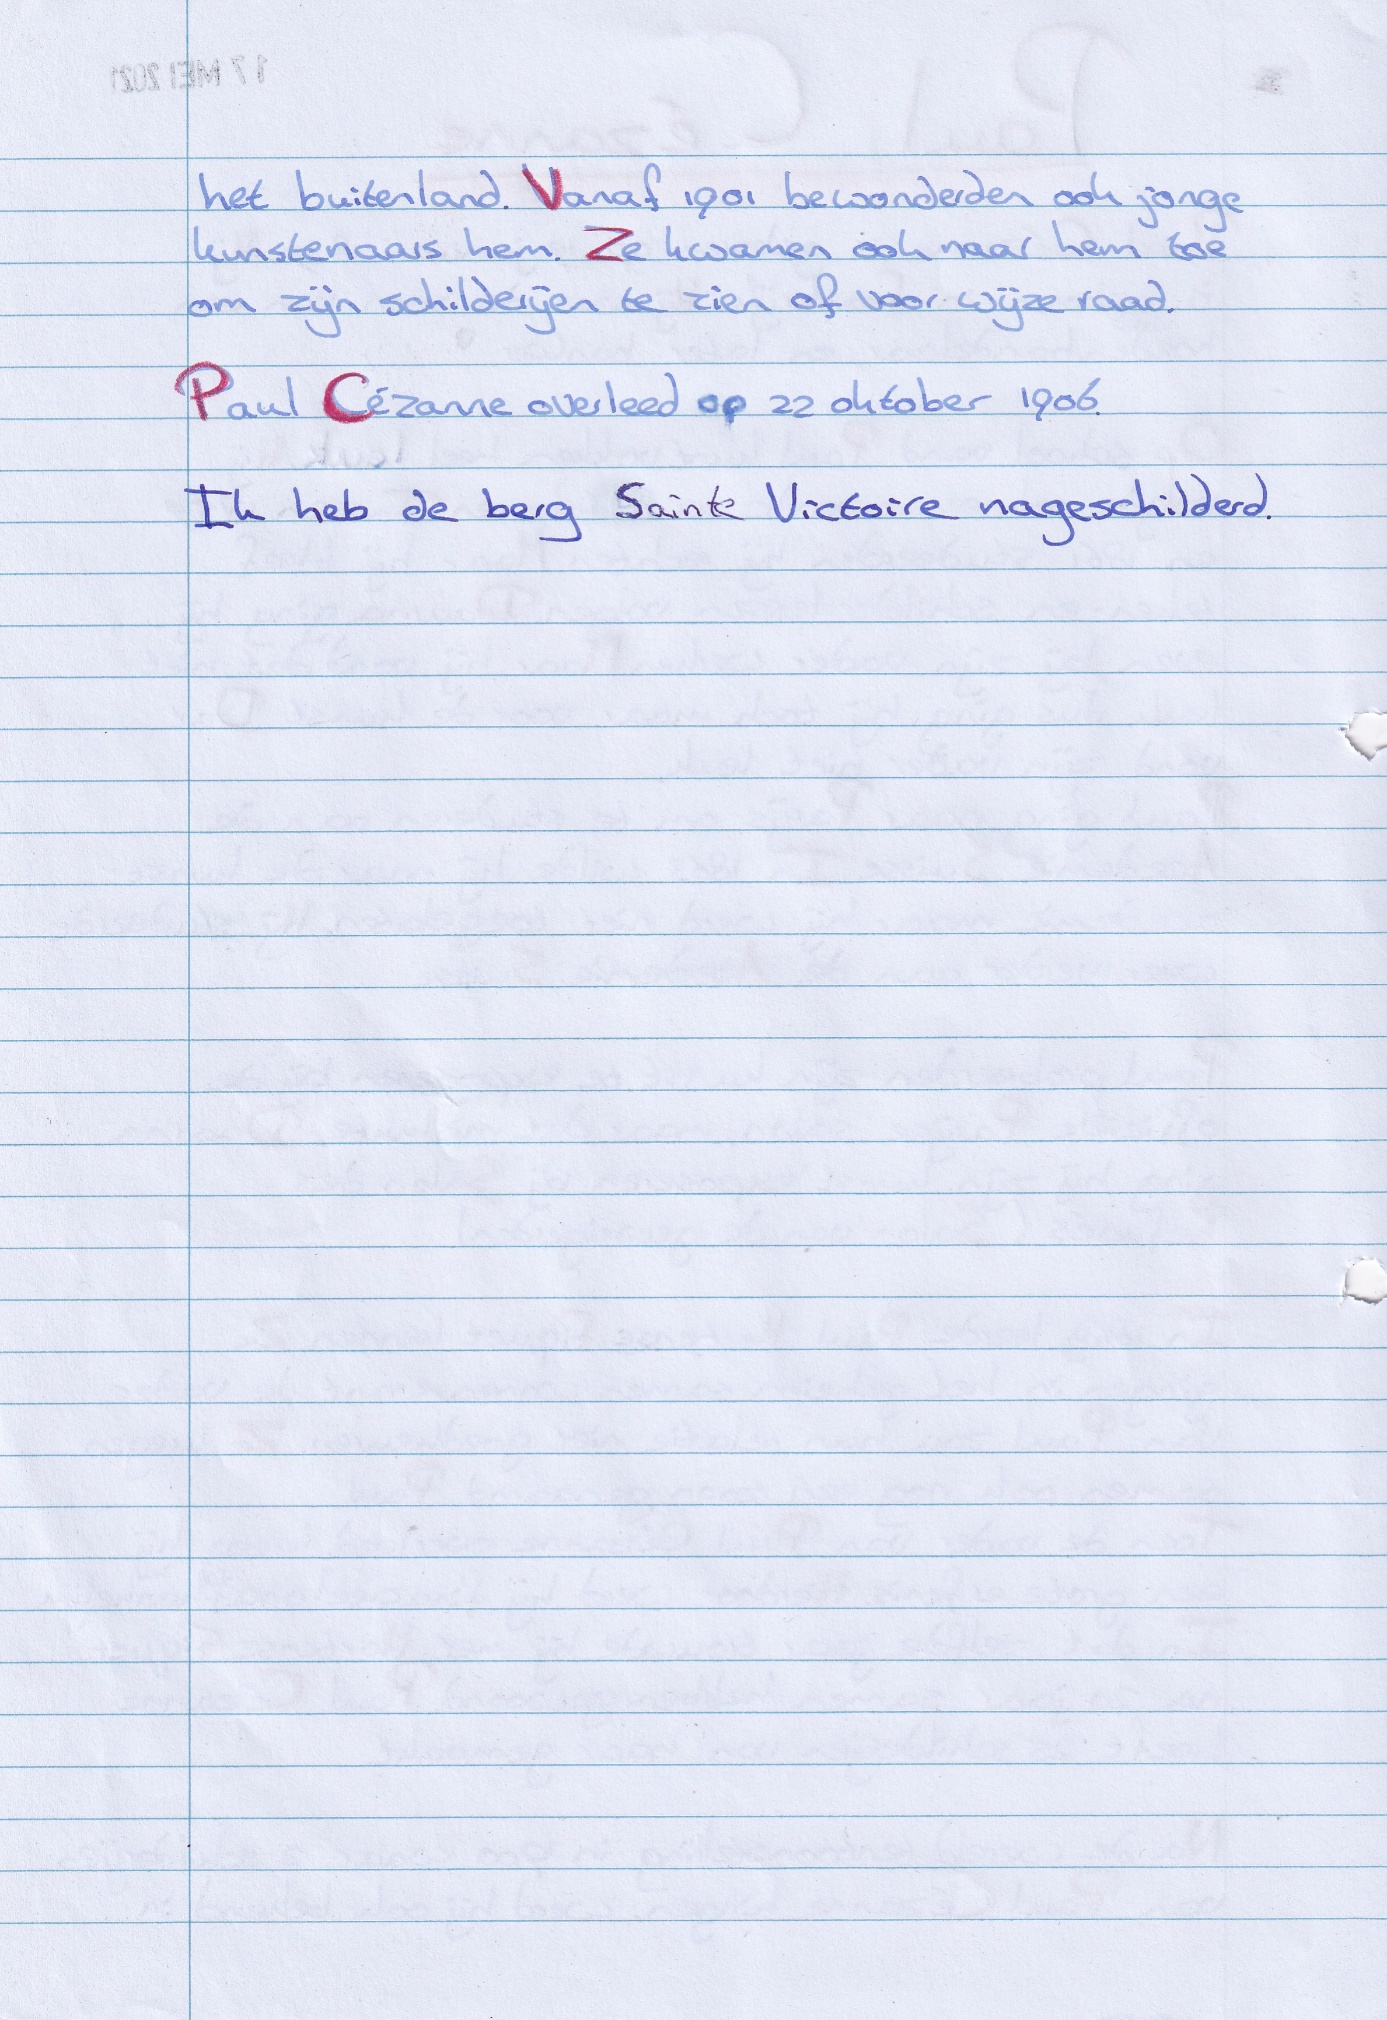 het buitenland. Vanaf 1901 bewonderden ook jonge
kunstenaars hem. Ze kwamen ook naar hem toe
om zijn schilderijen te zien of voor wijze raad.
Paul Cézanne overleed op 22 oktober 1906.
Ik heb de berg Sainte Victoire nageschilderd.